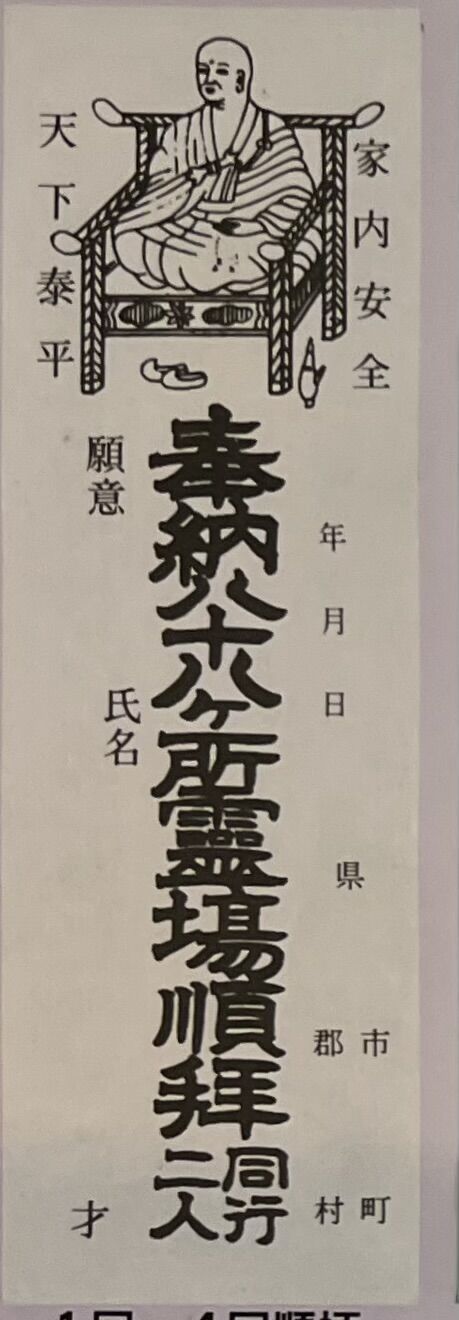 家内安全
天下泰平
年 月 日
県
市
郡
町
村
奉納八十八ヶ所霊場順拝
同行
二人
願意
氏名
才